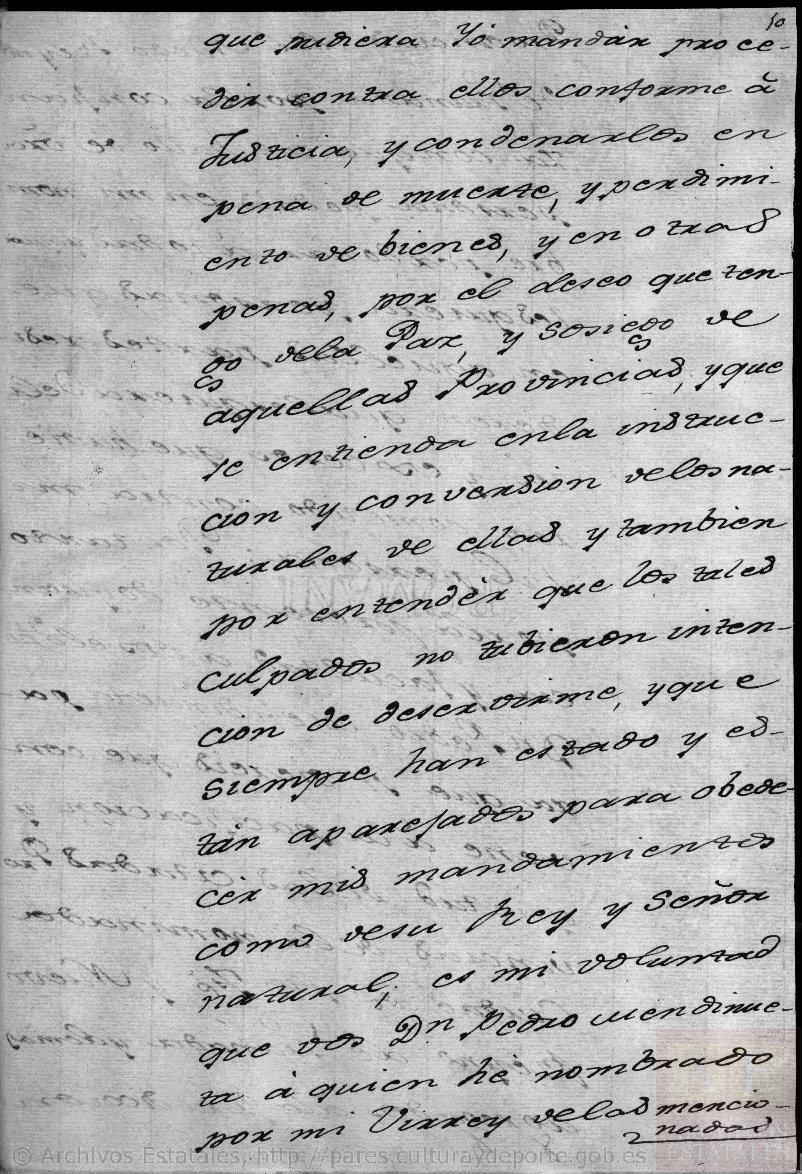 10
que pudiera Yó mandár proce-
der contra ellos conforme â
Justicia, y condenarlos en
pena de muerte, y perdimi-
ento de bienes, y en otras
penas, por el deseo que ten-
go dela Paz, y sosiego de
aquellas Provincias, y que
se entienda enla instruc-
cion y conversion delos na-
turales de ellas y tambien
por entendér que los tales
culpados no tubieron inten-
cion de deservirme, y que
siempre han estado y es-
tán aparejados para obede-
cér mis mandamientos
como desu Rey y Señor
natural, es mi voluntad
que vos Dn Pedro Mendinue-
ta á quien hé nombrado
por mi Virrey delas mencio-
nadas
© Archivos Estatales, http://pares.culturaydeporte.gob.es